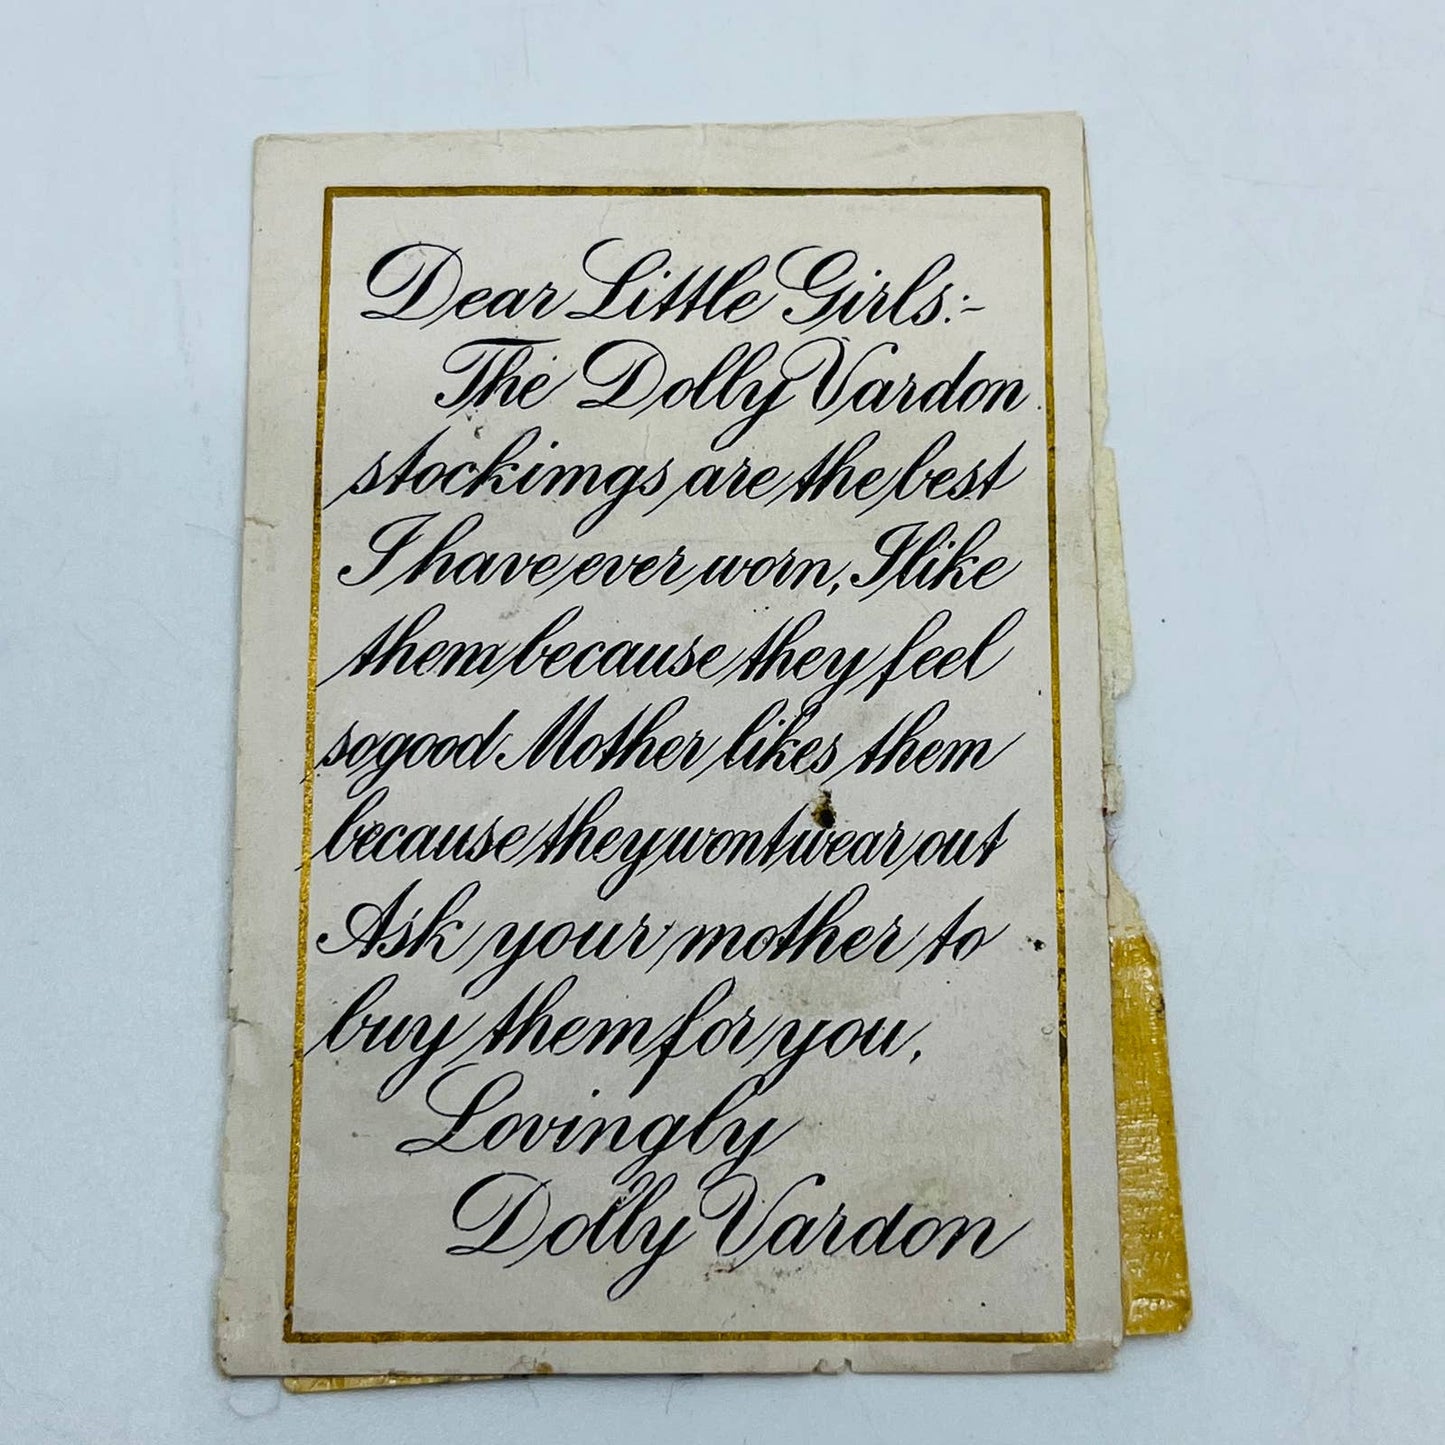 Dear Little Girls:-
The Dolly Vardon
stockings are the best
I have ever worn, I like
them because they feel
so good Mother likes them
because they wont wear out
Ask your mother to
buy them for you,
Lovingly
Dolly Vardon